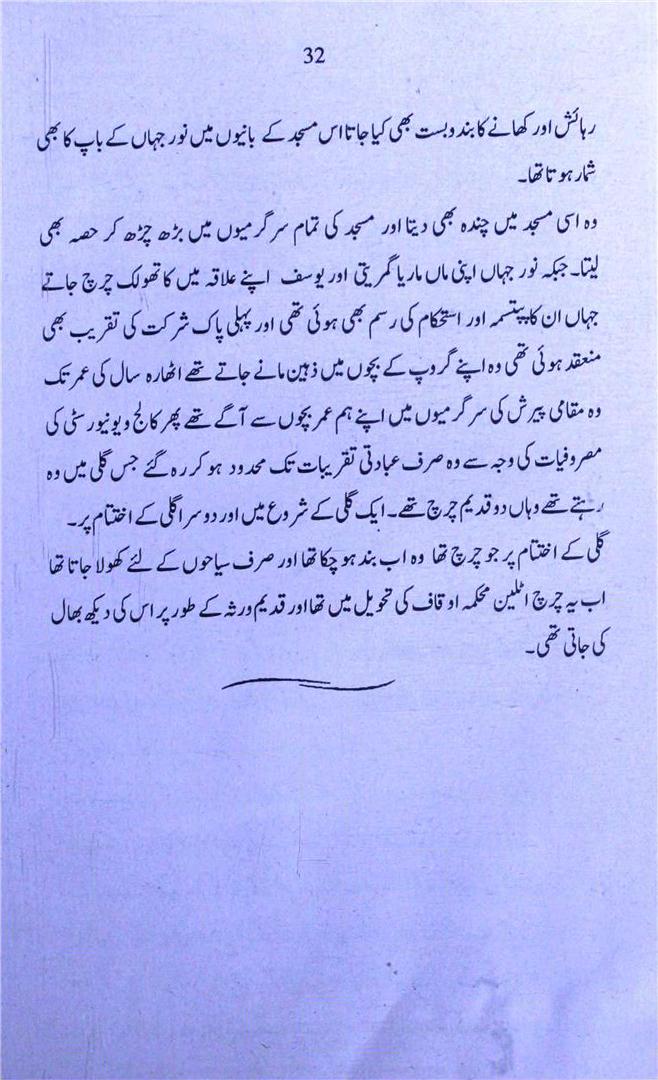 32
رہائش اور کھانے کا بندوبست بھی کیا جاتا اس مسجد کے بانیوں میں نور جہاں کے باپ کا بھی
شمار ہوتا تھا۔
وہ اسی مسجد میں چندہ بھی دیتا اور مسجد کی تمام سرگرمیوں میں بڑھ چڑھ کر حصہ بھی
لیتا۔ جبکہ نور جہاں اپنی ماں ماریا گمریتی اور یوسف اپنے علاقہ میں کاتھولک چرچ جاتے
جہاں ان کا بپتسمہ اور استحکام کی رسم بھی ہوئی تھی اور پہلی پاک شرکت کی تقریب بھی
منعقد ہوئی تھی وہ اپنے گروپ کے بچوں میں ذہین مانے جاتے تھے اٹھارہ سال کی عمر تک
وہ مقامی پیرش کی سرگرمیوں میں اپنے ہم عمر بچوں سے آگے تھے پھر کالج و یونیورسٹی کی
مصروفیات کی وجہ سے وہ صرف عبادتی تقریبات تک محدود ہو کر رہ گئے جس گلی میں وہ
رہتے تھے وہاں دو قدیم چرچ تھے۔ ایک گلی کے شروع میں اور دوسرا گلی کے اختتام پر۔
گلی کے اختتام پر جو چرچ تھا وہ اب بند ہو چکا تھا اور صرف سیاحوں کے لئے کھولا جاتا تھا
اب یہ چرچ اٹلین محکمہ اوقاف کی تحویل میں تھا اور قدیم ورثہ کے طور پر اس کی دیکھ بھال
کی جاتی تھی۔